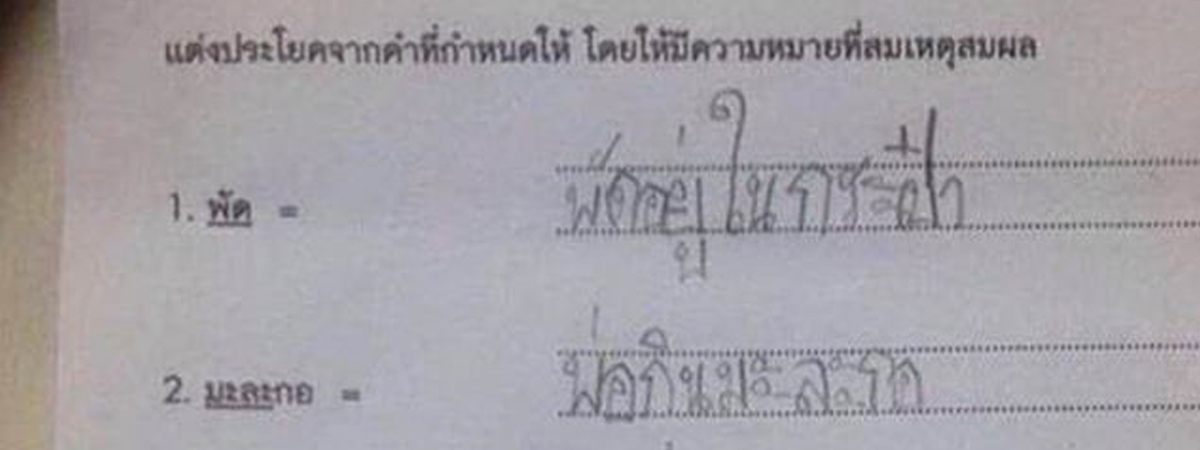 แต่งประโยคจากคำที่กำหนดให้ โดยให้มีความหมายที่สมเหตุสมผล
1. พัด = พัดอยู่ในกระเป๋า
2. มะละกอ = พ่อกินมะละกอ